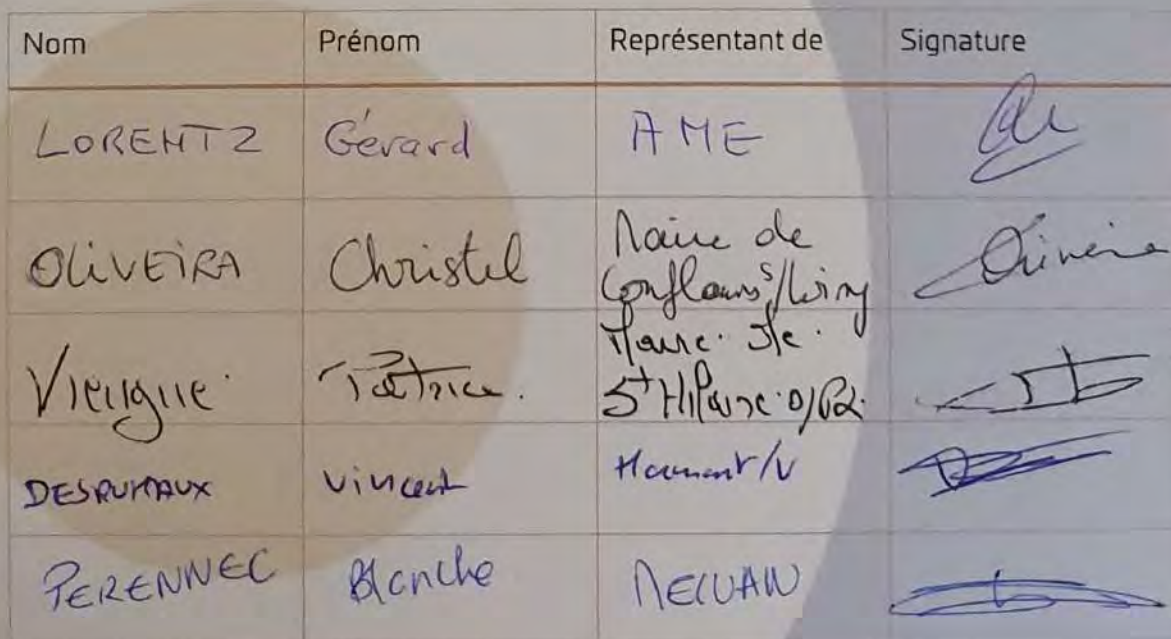 Nom Prénom Représentant de Signature
LORENTZ Gérard AME
OLIVEIRA Christel Maire de
Conflans s/Loing
Maire de
Viengue Patrice. St Hilaire
DESRUMAUX Vincent
PERENNEC Blanche